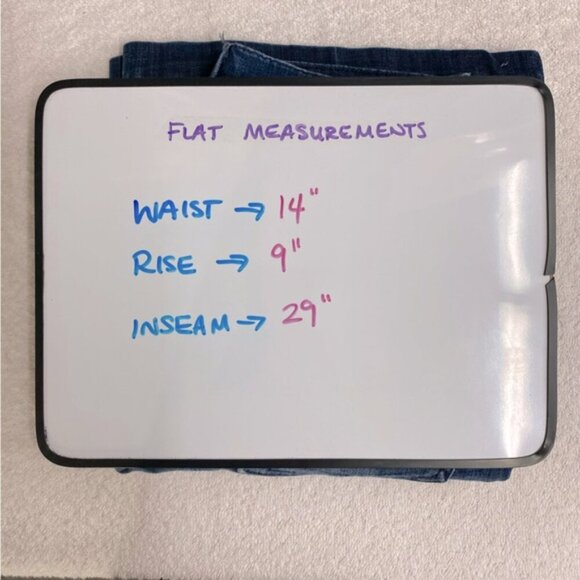 FLAT MEASUREMENTS
WAIST → 14"
RISE → 9"
INSEAM → 29"